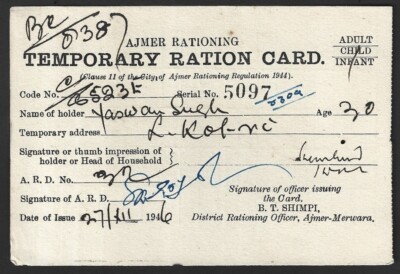 5387
AJMER RATIONING
ADULT
CHILD
INFANT
TEMPORARY RATION CARD.
(Clause 11 of the City of Ajmer Rationing Regulation 1944).
Code No. 65235 Serial No. 5097
Name of holder Jaswan Singh Age 30
Temporary address
Signature or thumb impression of
holder or Head of Household
A. R. D. No. 32
Signature of A. R. D.
Signature of officer issuing
the Card.
B. T. SHIMPI,
Date of Issue 27/XII 1946
District Rationing Officer, Ajmer-Merwara.